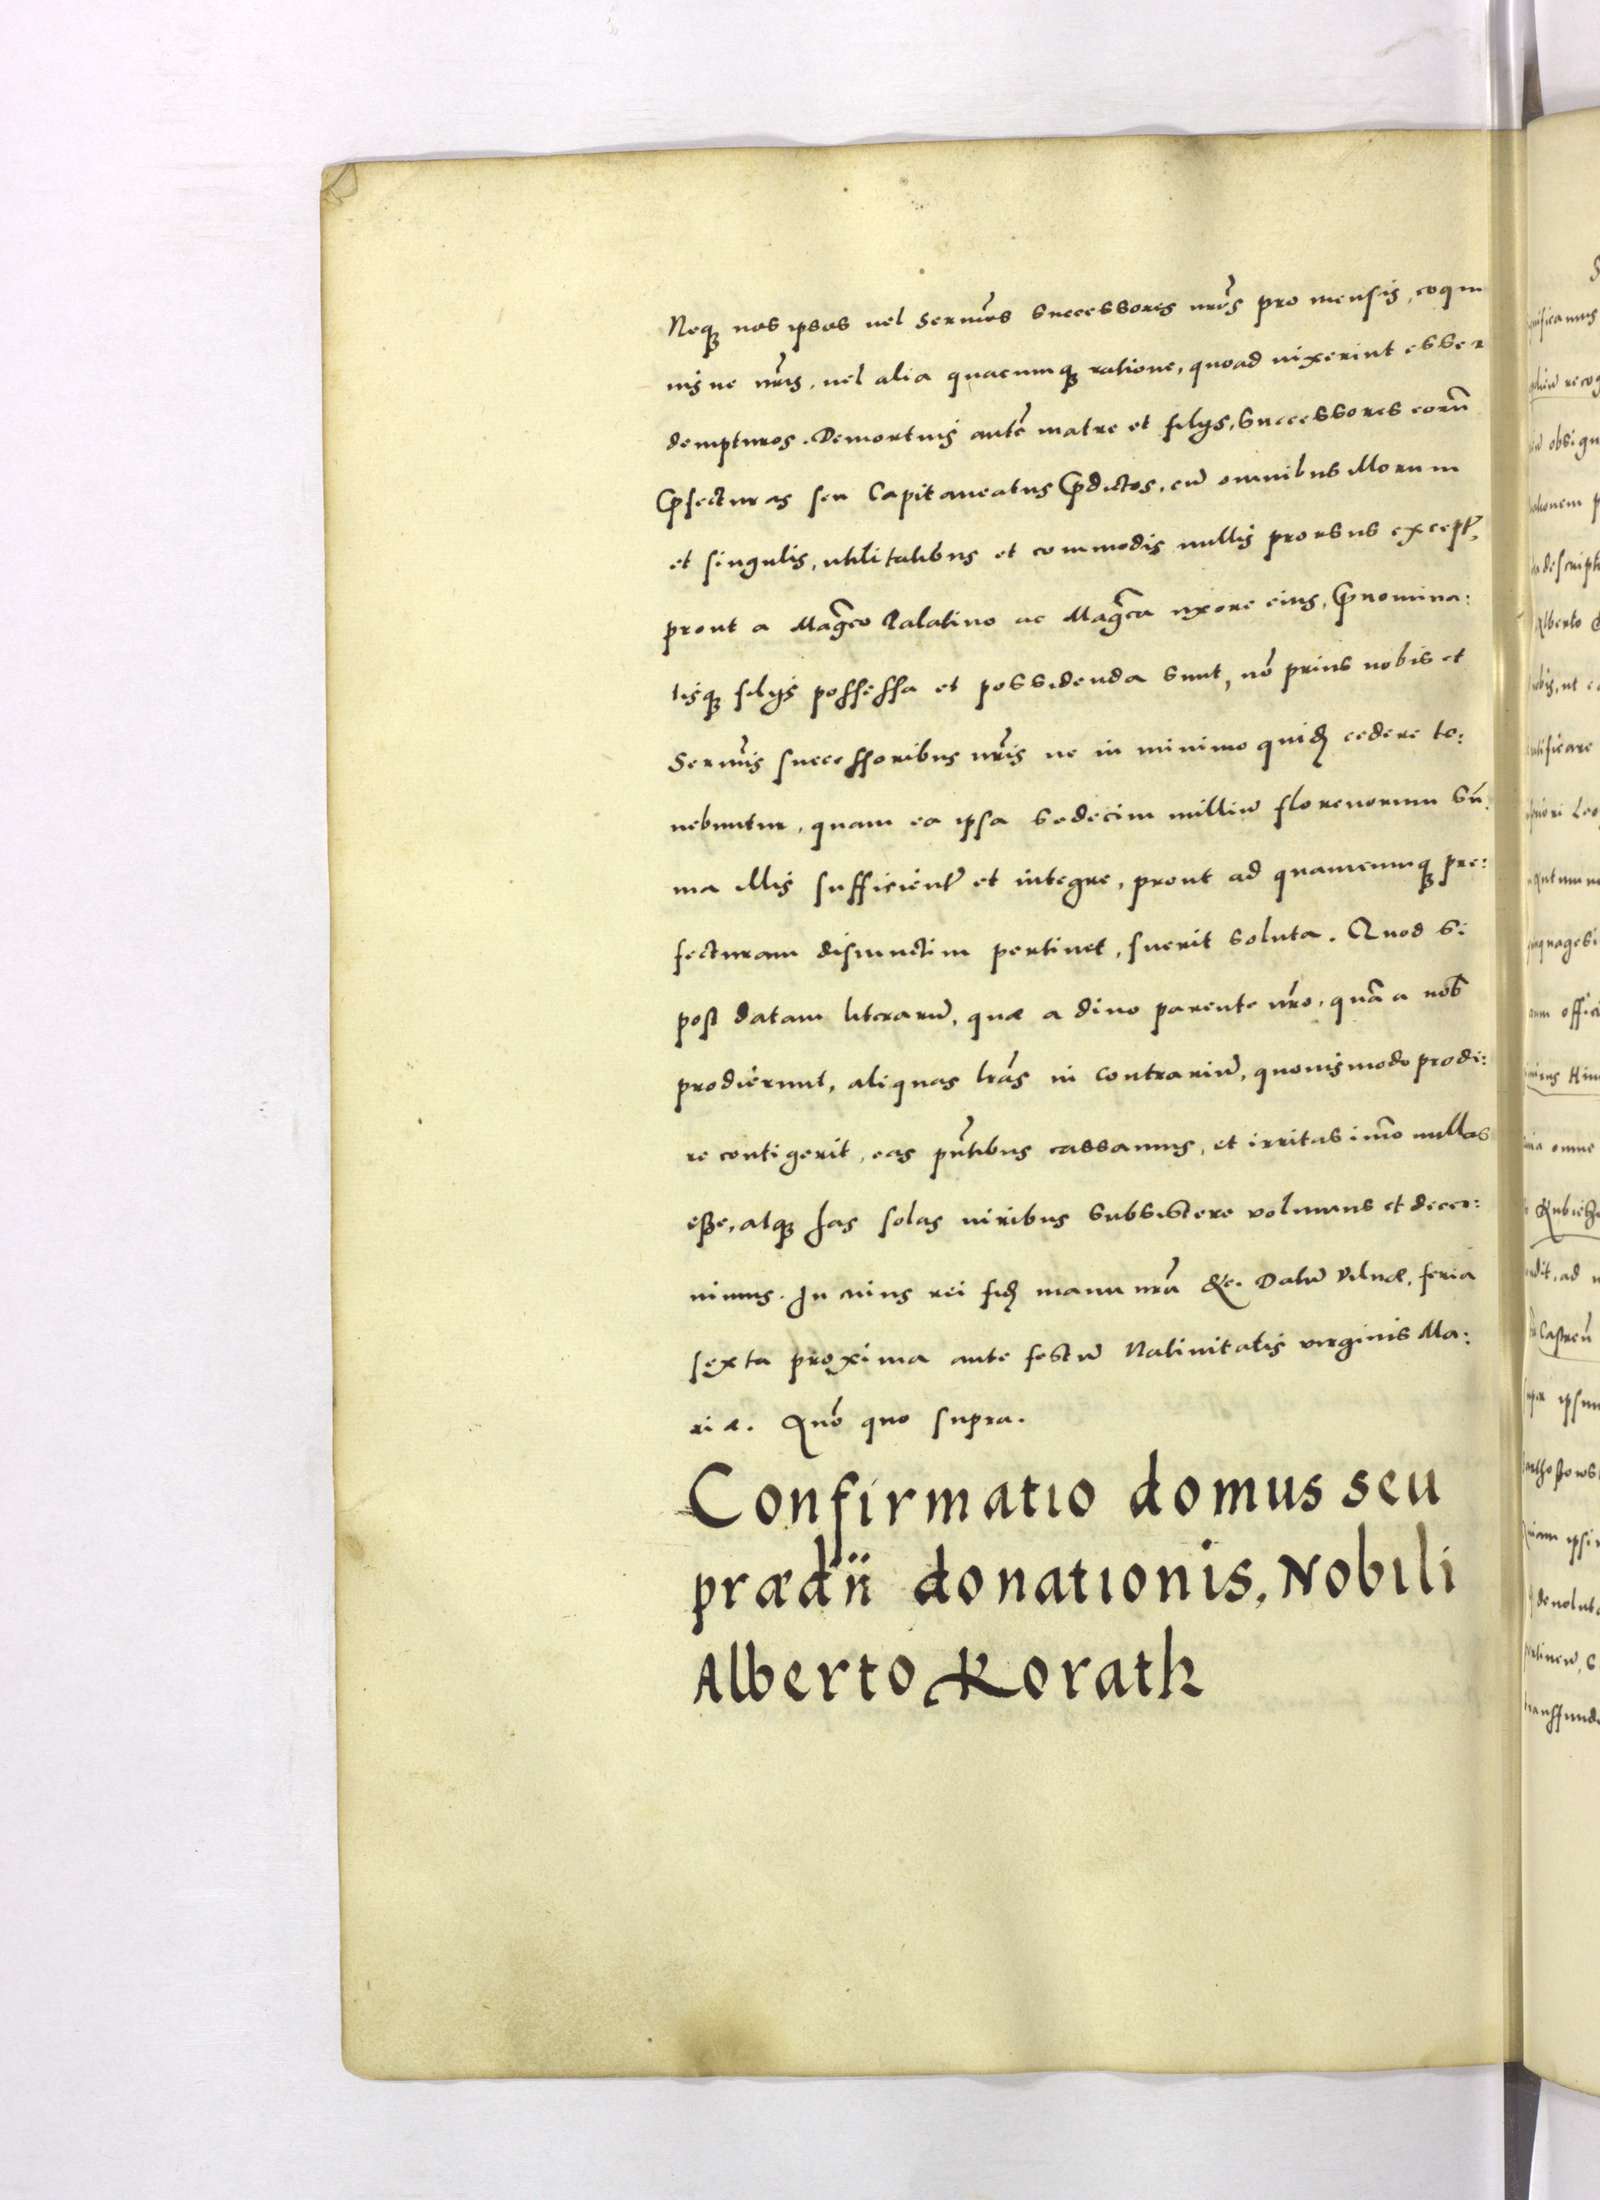 Neq₃ nos ipsos vel Sermos successores nros pro mensis, coqui
nis ve nris, vel alia quacumq₃ ratione, quoad vixerint esse r
dempturos. Demortuis aute matre et filijs, Successores eoru
Pfecturas seu Capitaneatus Pdictos, cu omnibus illorum
et singulis, utilitatibus et commodis nullis prorsus except,
prout a Magco Palatino ac Magca uxore eius, Pnomina:
tisq₃ filijs possessa et possidenda sunt, no prius nobis et
Sermis successoribus nris ne in minimo quide cedere te:
nebuntur, quam ea ipsa sedecim milliu florenorum su
ma illis sufficienter et integre, prout ad quamcumq₃ pre:
fecturam disiunctim pertinet, fuerit soluta. Quod si
post datam literaru, quæ a divo parente nro, qua a nob
prodierunt, aliquas lras in contrariu, quovismodo prodi:
re contigerit, eas pntibus cassamus, et irritas imo nullas
esse, atq₃ has solas viribus subsistere volumus et decer:
nimus. In cuius rei fide manu nra &c. Datu Vilnæ, feria
sexta proxima ante festu Nativitatis virginis Ma:
riæ. Anno quo supra.
Confirmatio domus seu
prædii donationis, Nobili
Alberto Korath